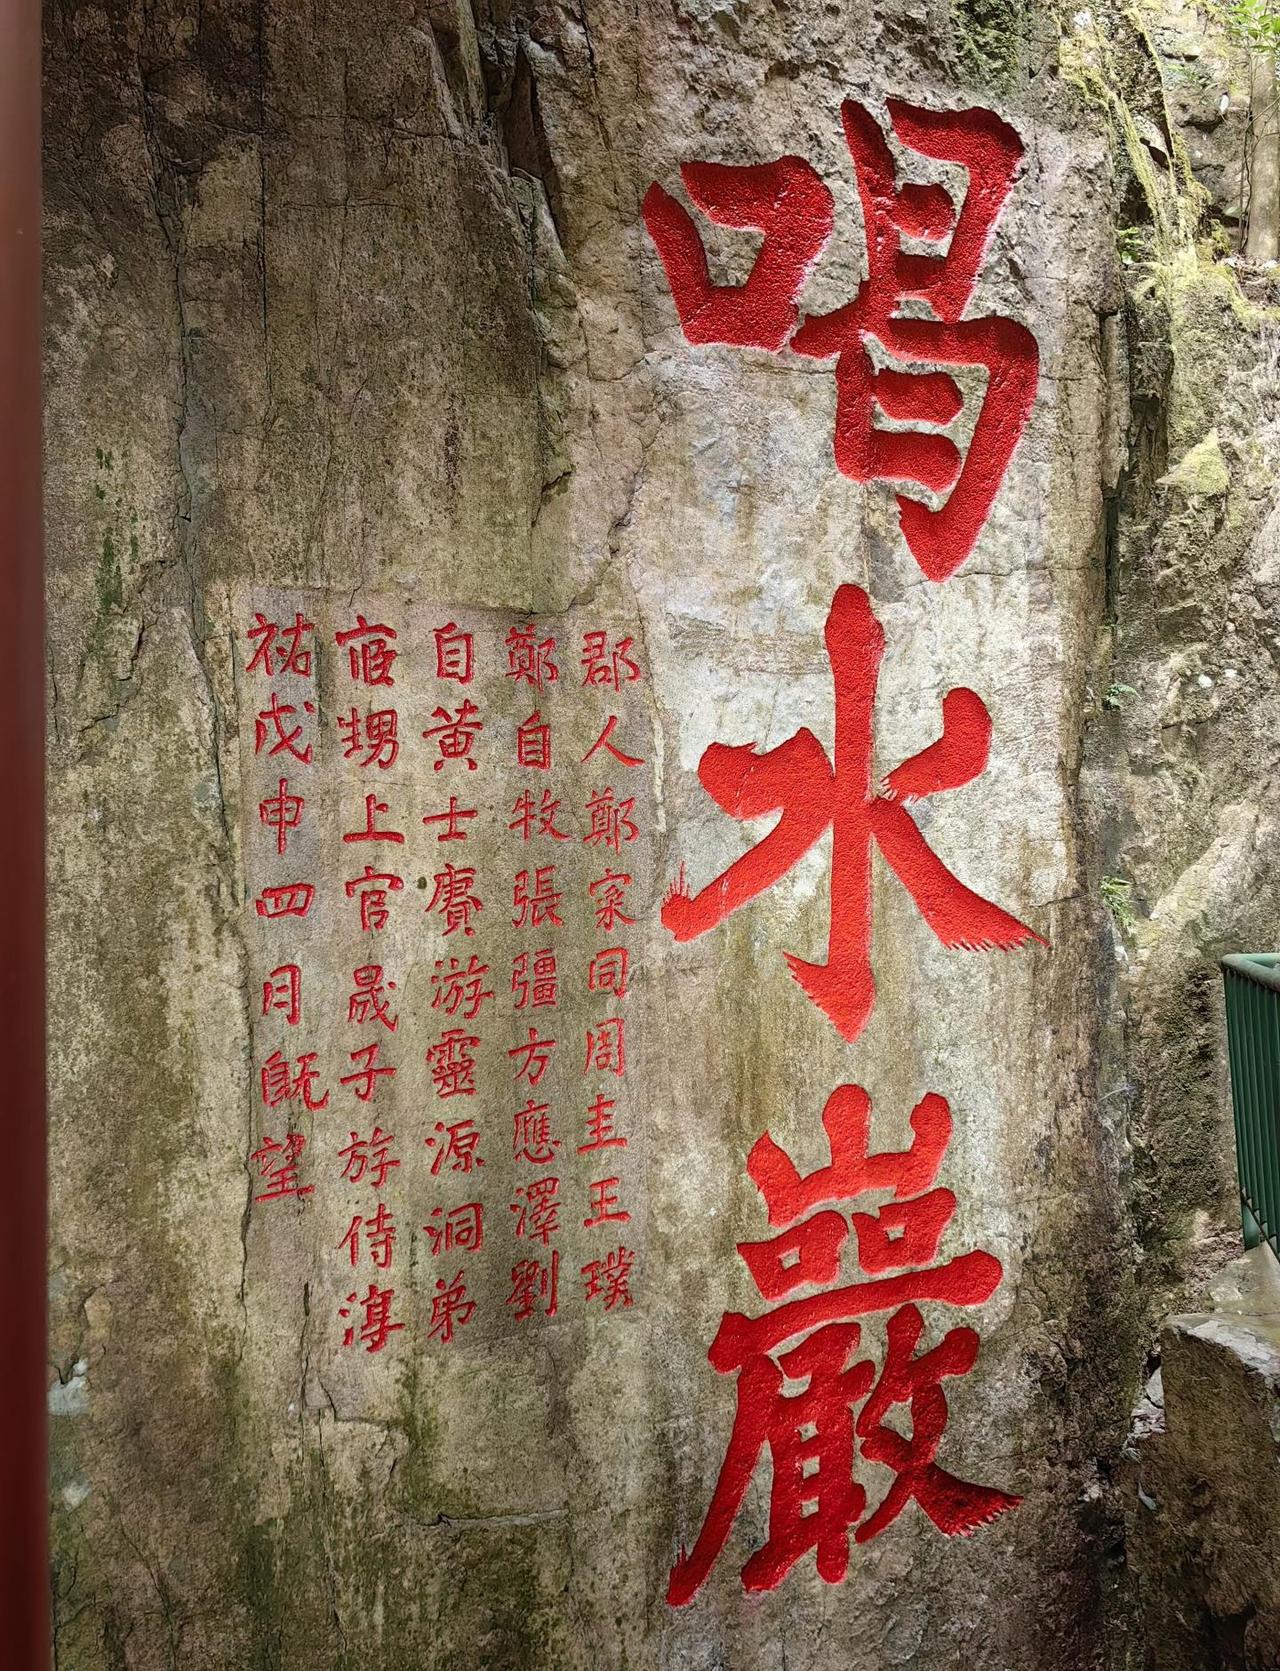 喝水巖
郡人鄭寀同周圭王璞
鄭自牧張彊方應澤劉
自黄士賡游靈源洞弟
㝛甥上官晟子㳺侍淳
祐戊申四月既望